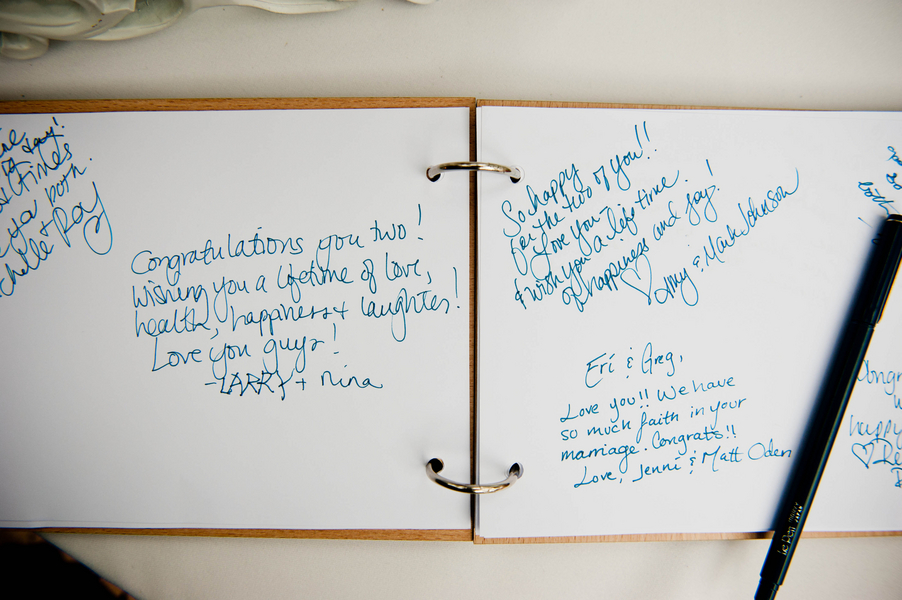 day!
times
ya both.
Ray
Congratulations you two!
Wishing you a lifetime of love,
health, happiness + laughter!
Love you guys!
-LARRY + Nina
So happy
for the two of you!!
I love you -
& wish you a life time
of happiness and joy!
♡ Amy & Mark Johnson
Eri & Greg,
Love you!! We have
so much faith in your
marriage. Congrats!!
Love, Jenni & Matt Oden
Le Pen